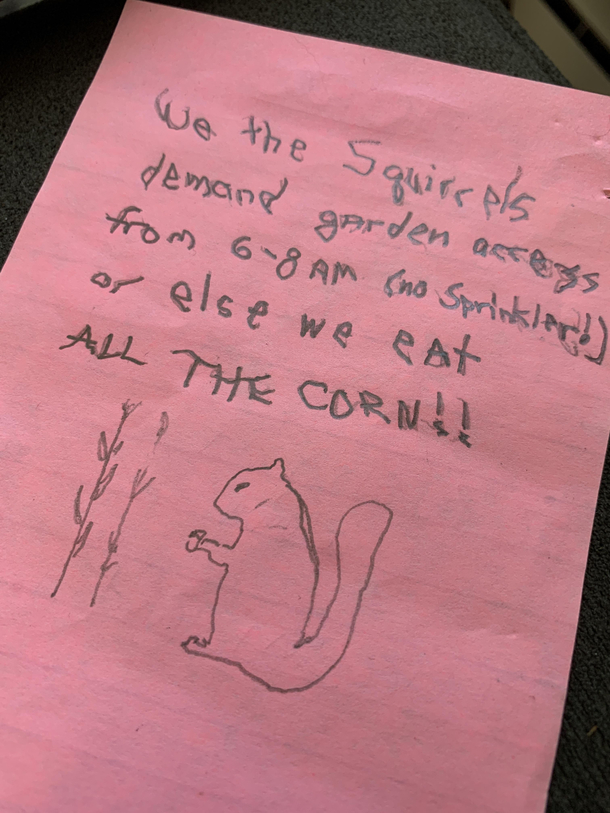 We the Squirrels
demand garden access
from 6-8 AM (no Sprinkler!)
or else we eat
ALL THE CORN!!